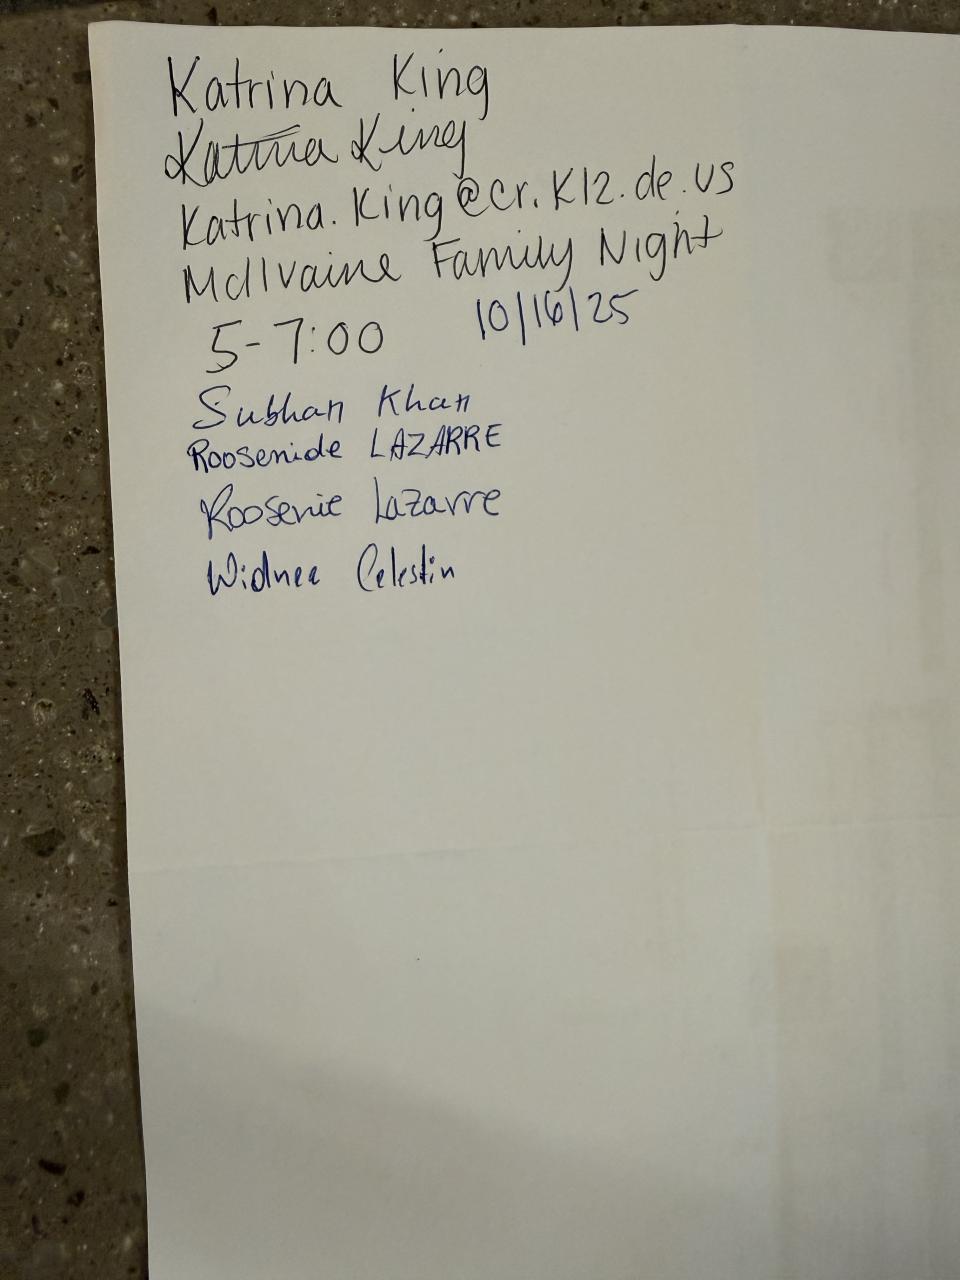 Katrina King
Katrina King
Katrina.King@cr.K12.de.us
McIlvaine Family Night
5-7:00 10/16/25
Subhan Khan
Roosenide LAZARRE
Roosenie Lazarre
Widnee Celestin